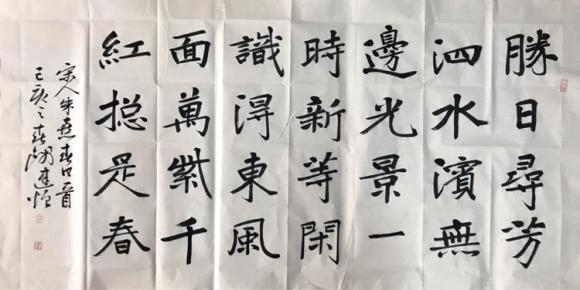 勝日尋芳
泗水濱無
邊光景一
時新等閑
識淂東風
面萬紫千
紅捴是春
宋人朱熹春日首
己亥之春